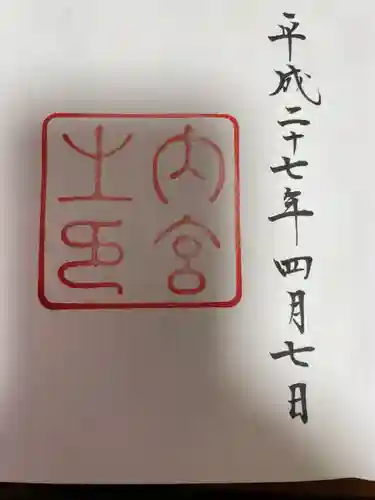 平成二十七年四月七日
内宮
之印